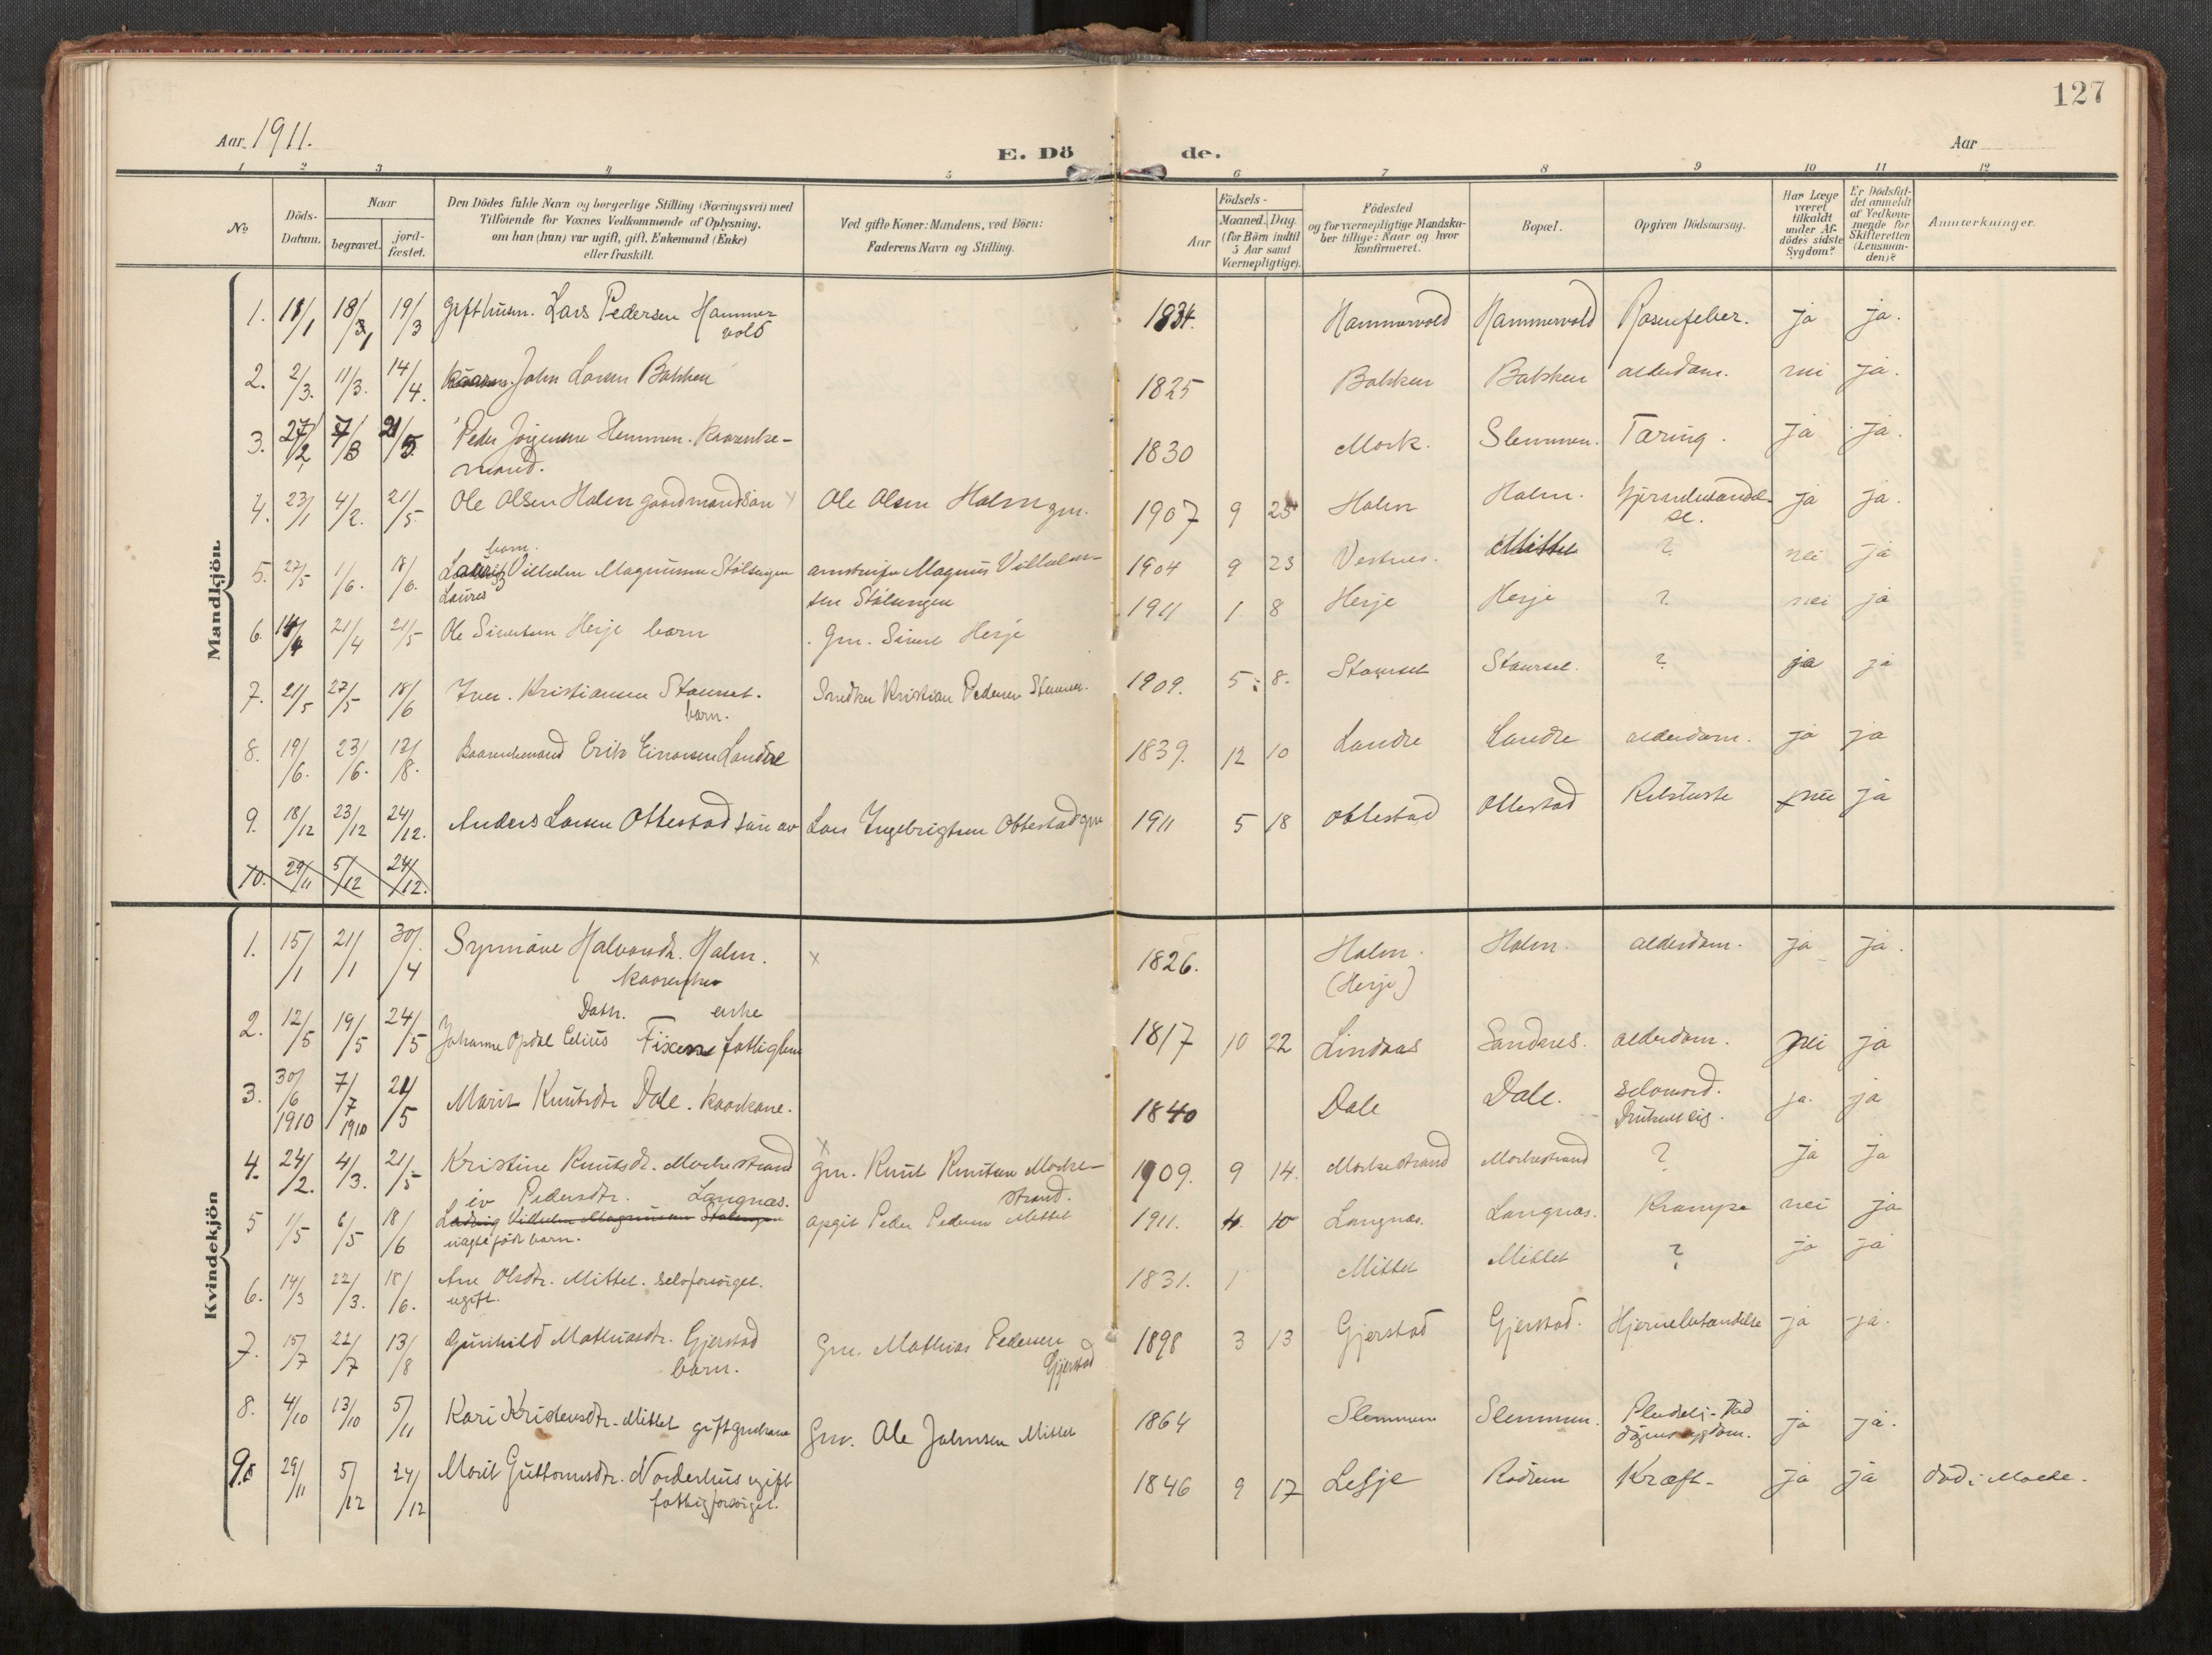 127
Aar 1911.
E. Döde.
Aar
1 2 3 4 5 6 7 8 9 10 11 12
No
Döds-Datum.
Naar
begravet.
jord-fæstet.
Den Dödes fulde Navn og borgerlige Stilling (Næringsvei) med
Tilföiende for Voxnes Vedkommende af Oplysning,
om han (hun) var ugift, gift, Enkemand (Enke)
eller fraskilt.
Ved gifte Koner: Mandens, ved Börn:
Faderens Navn og Stilling.
Födsels-
Aar
Maaned. Dag.
(for Börn indtil
5 Aar samt
Værnepligtige).
Födested
og for værnepligtige Mandska-
ber tillige: Naar og hvor
konfirmeret.
Bopæl.
Opgiven Dödsaarsag.
Har Læge
været
tilkaldt
under Af-
dödes sidste
Sygdom?
Er Dödsfal-
det anmeldt
af Vedkom-
mende for
Skifteretten
(Lensman-
den)?
Anmærkninger.
Mandkjön.
1. 18/1 18/1 19/3 Gift husm. Lars Pedersen Hammervold 1834. Hammervold Hammervold Rosenfeber. ja ja.
2. 2/3. 11/3. 14/4. John Larsen Bakken 1825 Bakken Bakken alderdom. nei ja.
3. 27/2 7/3 21/5. Peder Jörgensen Hemmen. Kaarenke-
mand. 1830 Mork. Slemmen. Tæring. ja ja.
4. 23/1 4/2. 21/5. Ole Olsen Holm gaardmandsön Ole Olsen Holm gm. 1907 9 23 Holm Holm. ja ja.
5. 27/5 1/6. 18/6. barn. Vilhelm Magnusen Stölsengen
Laures Magnus Vilhelm-
sen Stölsengen 1904 9 23 Vestnes. Mittet ? nei ja
6. 14/4 21/4 21/5 Ole Sivertsen Herje barn Gm. Sivert Herje 1911 1 8 Herje Herje ? nei ja
7. 21/5 27/5 18/6 Iver Kristiansen Staurset.
barn. Snedker Kristian Pedersen 1909. 5 8. Staurset Staurset. ? ja ja
8. 19/6. 23/6. 13/8. Kaarenkemand Erik Einarsen Landre 1839. 12 10 Landre Landre alderdom. ja ja
9. 18/12 23/12 24/12. Anders Larsen Ottestad sön av Lars Ingebrigtsen Ottestad gm 1911 5 18 Ottestad Ottestad Kikhoste nei ja
10. 29/11 5/12 24/12.
Kvindekjön
1. 15/1 21/1 30/4 Synnöve Halvorsdr. Holm.
1826. Holm.
(Herje) Holm. alderdom. ja ja.
2. 12/5 19/5 24/5 Datr. enke
Johanne Opdal Celius fattiglem 1817 10 22 Lindaas Sandnes. alderdom. nei ja
3. 30/6 1910 7/7 1910 21/5 Marit Knutsdtr Dale. Kaarkone. 1840 Dale Dale. selvmord.
ja. ja
4. 24/2. 4/3. 21/5 Kristine Knutsdr. Morkestrand gm. Knut Knutsen Morke-
strand. 1909. 9 14. Morkestrand Morkestrand ? ja ja
5 1/5 6/5 18/6 Pedersdtr. Langnas.
Vilhelm Magnusen Stölsengen
barn. Peder Pedersen Mittet 1911. 4. 10 Langnas. Langnas. Krampe nei ja
6. 14/3 22/3. 18/6. Ane Olsdtr. Mittet. selvforsörget.
ugift. 1831. 1 Mittet Mittet ? ja ja
7. 15/7 22/7 13/8 Gunhild Mathiasdtr. Gjerstad
barn. Gm. Mathias Pedersen
Gjerstad 1898 3 13 Gjerstad Gjerstad. Hjernebetændelse ja ja.
8. 4/10 13/10 5/11 Kari Kristensdtr. Mittet gift gmkone Gm. Ole Johnsen Mittet 1864 Slemmen Slemmen. ja ja.
9. 29/11 5/12 24/12 Marit Guttormsdtr. Norderhus ugift
fattigforsörget. 1846 9 17 Lesje Rödven Kræft. ja ja död i Molde.